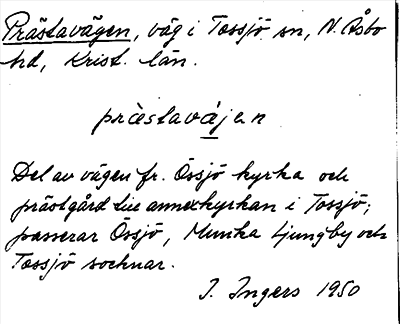 Prästavägen, väg i Tossjö sn, N. Åsbo
hd, Krist. län.
prèstavájen
Del av vägen fr. Össjö kyrka och
prästgård till annexkyrkan i Tossjö;
passerar Össjö, Munka Ljungby och
Tossjö socknar.
I. Ingers 1950